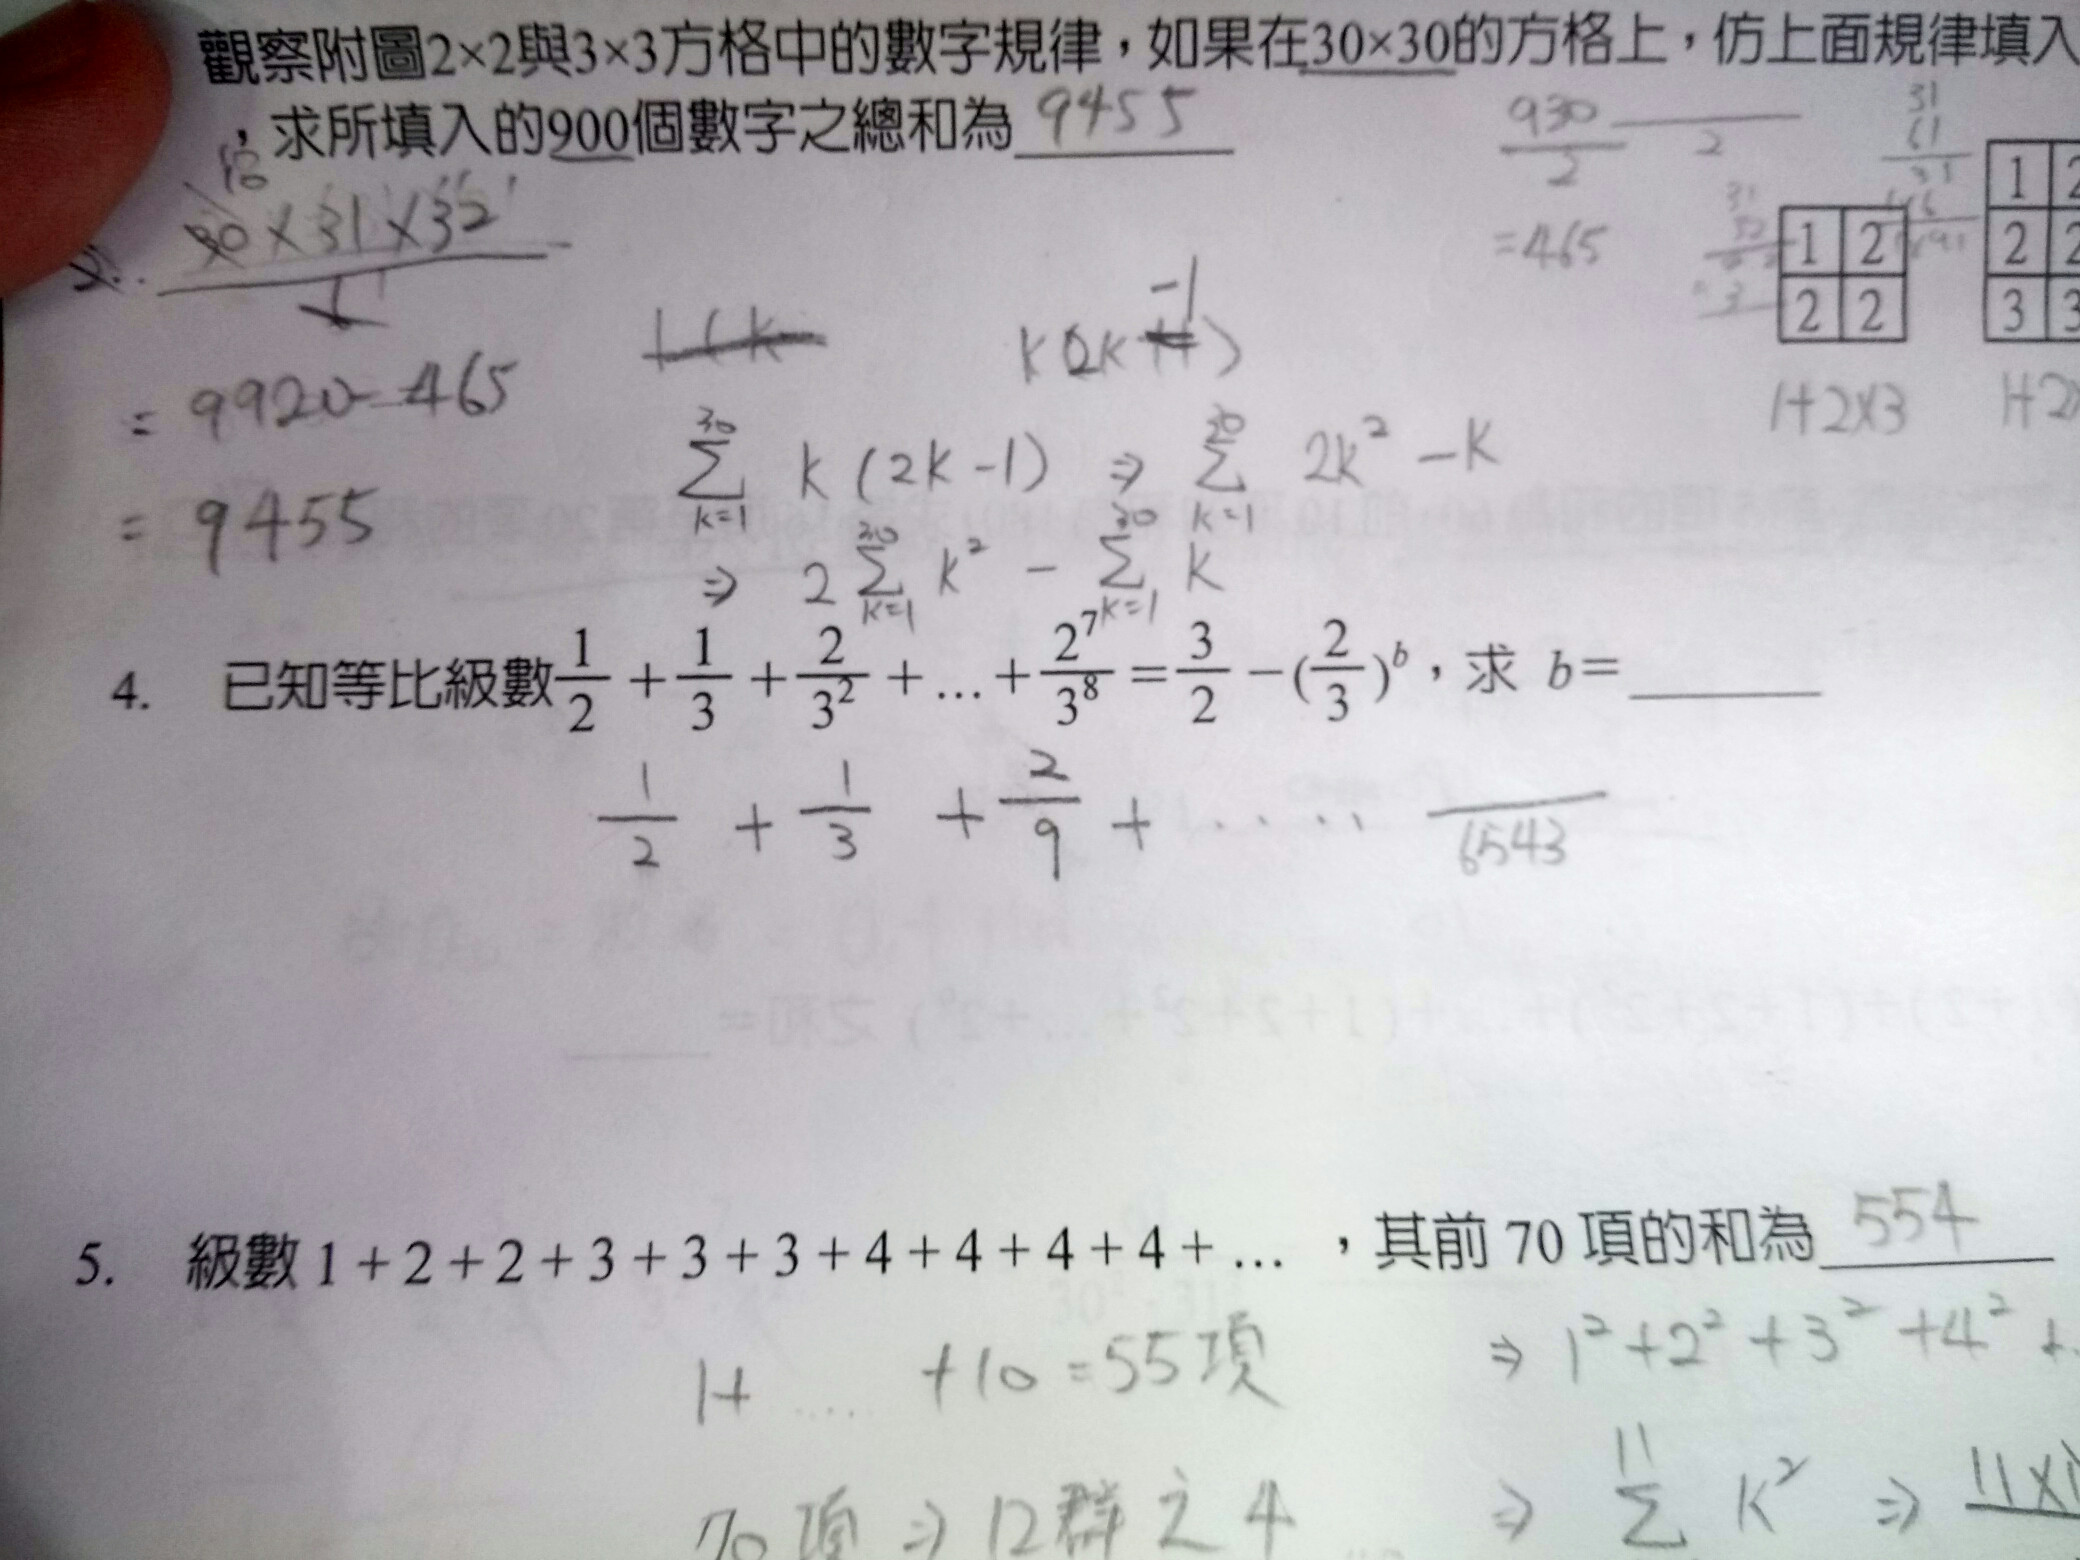 觀察附圖2×2與3×3方格中的數字規律，如果在30×30的方格上，仿上面規律填入
，求所填入的900個數字之總和為 9455
930/2
=465
30×31×32
= 9920-465
= 9455
k(2k-1)
1 2
2 2
1
2
3
1+2×3
∑_{k=1}^{30} k(2k-1) ⇒ ∑_{k=1}^{30} 2k²-k
⇒ 2∑_{k=1}^{30} k² - ∑_{k=1}^{30} k
4. 已知等比級數 1/2 + 1/3 + 2/3² + ... + 2⁷/3⁸ = 3/2 - (2/3)^b，求 b=
1/2 + 1/3 + 2/9 + ..... /6543
5. 級數 1+2+2+3+3+3+4+4+4+4+... ，其前 70 項的和為 554
1+ ..... +10 = 55項
⇒ 1²+2²+3²+4²+
70項 ⇒ 12群之4
⇒ ∑^{11} k² ⇒